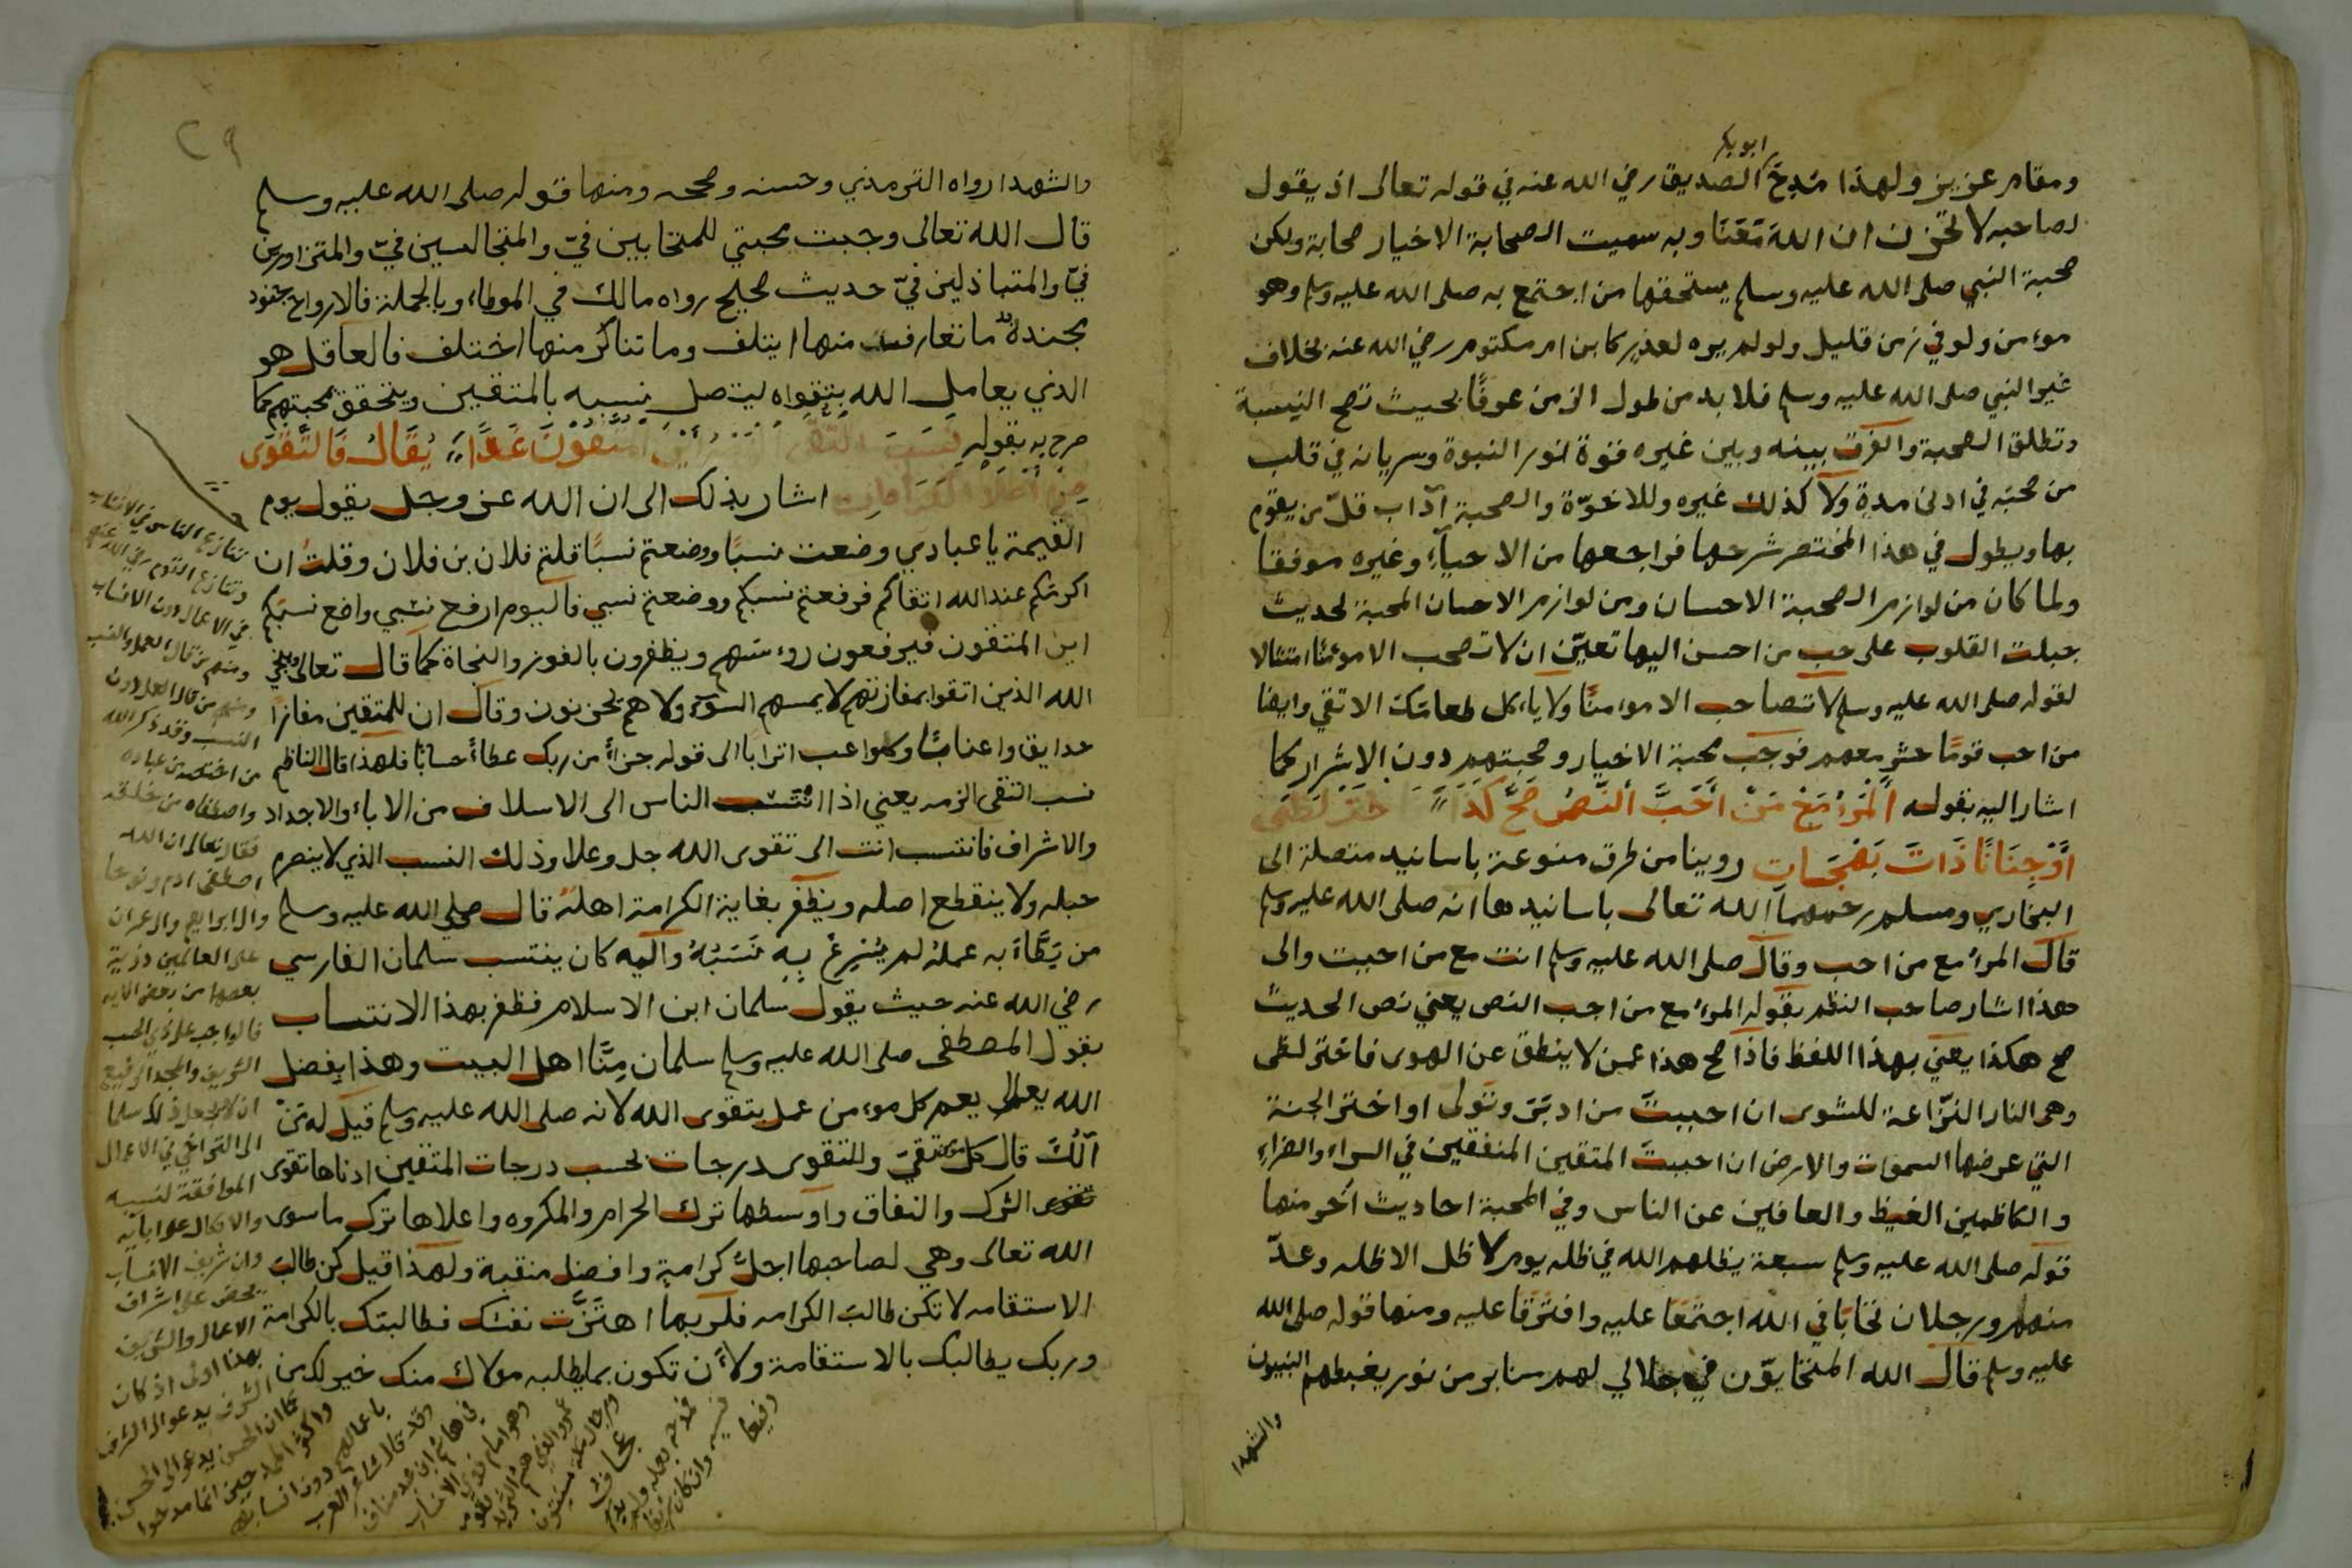 ابوبكر
ومقام عزيز ولهذا مُدِحَ الصديق رضي الله عنه في قوله تعالى اذ يقول
لصاحبه لا تحزن ان الله مَعَنَا وبه سميت الصحابة الاخيار صحابة ولكن
صحبة النبي صلى الله عليه وسلم يستحقها من اجتمع به صلى الله عليه وسلم وهو
موءمن ولو في زمن قليل ولو لم يره لعذرٍ كابن ام مكتوم رضي الله عنه بخلاف
غير النبي صلى الله عليه وسلم فلا بد من طول الزمن عرفًا بحيث تصح النسبة
وتطلق الصحبة والفرق بينه وبين غيره قوة نور النبوة وسريانه في قلب
من صحبه في ادنى مدةٍ ولا كذلك غيره وللاخوّة والصحبة آداب قلّ من يقوم
بها ويطول في هذا المختصر شرحها فراجعها من الاحيآءِ وغيره موفقا
ولما كان من لوازم الصحبة الاحسان ومن لوازم الاحسان المحبة لحديث
جبلت القلوب على حب من احسن اليها تعيّن ان لا تصحب الا موءمنًا امتثالا
لقوله صلى الله عليه وسلم لا تصاحب الا موءمنًا ولا ياءكل طعامك الا تقي وايضا
من احب قومًا حشر معهم فوجب محبة الاخيار وصحبتهم دون الاشرار كما
اشار اليه بقوله اَلْمَرْءُ مَعْ مَنْ اَحَبَّ اَلنَّصُ صَحَّ كَذَا
اَوْ جِنَانًا ذَاتَ بَهْجَاتِ روينا من طرق منوعة باسانيد متصلة الى
البخاري ومسلم رحمهما الله تعالى باسانيدهما انه صلى الله عليه وسلم
قال المرءُ مع من احب وقال صلى الله عليه وسلم انت مع من احببت والى
هذا اشار صاحب النظم بقوله المرءُ مع من احب النص يعني نص الحديث
صح هكذا يعني بهذا اللفظ فاذا صح هذا عمن لا ينطق عن الهوى فاختر لظى
وهي النار النزّاعة للشوى ان احببتَ من ادبَرَ وتولى او اختر الجنة
التي عرضها السموات والارض ان احببتَ المتقين المنفقين في السراء والضراءِ
والكاظمين الغيظ والعافين عن الناس وفي المحبة احاديث أخر منها
قوله صلى الله عليه وسلم سبعة يظلهم الله في ظله يوم لا ظل الا ظله وعدّ
منهم ورجلان تحابّا في الله اجتمعَا عليه وافترقَا عليه ومنها قوله صلى الله
عليه وسلم قال الله المتحابوّن في جلالي لهم منابر من نور يغبطهم النبيون
والشهدا
٢٩
والشهدا رواه الترمذي وحسنه وصححه ومنها قوله صلى الله عليه وسلم
قال الله تعالى وجبت محبتي للمتحابين فيّ والمتجالسين فيّ والمتزاورين
فيّ والمتباذلين فيّ حديث صحيح رواه مالك في الموطاء وبالجملة فالارواح جنود
مجندة ما تعارف منها ايتلف وما تناكر منها اختلف فالعاقل هو
الذي يعامل الله بتقواه ليتصل نسبه بالمتقين ويتحقق محبتهم كما
صرح به بقولهِ يُقَالُ فَالتَّقْوَى
اشار بذلك الى ان الله عز وجل يقول يوم
القيمة يا عبادي وضعت نسبًا ووضعتم نسبًا قلتم فلان بن فلان وقلتُ ان
اكرمكم عند الله اتقاكم فرفعتم نسبكم ووضعتم نسبي فاليوم ارفع نسبي واضع نسبكم
اين المتقون فيرفعون روءسهم ويظفرون بالفوز والنجاة كما قال تعالى وينجي
الله الذين اتقوا بمفازتهم لا يمسهم السوء ولا هم يحزنون وقال ان للمتقين مفازًا
حدايق واعنابًا وكواعب اترابا الى قوله جزاءً من ربك عطاءً حسابًا فلهذا قال الناظم
نسب التقى الزمه يعني اذا انتسب الناس الى الاسلاف من الاباءِ والاجداد
والاشراف فانتسب انت الى تقوى الله جل وعلا وذلك النسب الذي لا ينصرم
حبله ولا ينقطع اصله ويظفر بغاية الكرامة اهله قال صلى الله عليه وسلم
من بَطَّاءَ به عملهُ لم يُسْرِعْ بِهِ نَسَبُهُ واليه كان ينتسب سلمان الفارسي
رضي الله عنه حيث يقول سلمان ابن الاسلام فظفر بهذا الانتساب
بقول المصطفى صلى الله عليه وسلم سلمان مِنَّا اهل البيت وهذا بفضل
الله يعم كل موءمن عمل بتقوى الله لانه صلى الله عليه وسلم قيل له مَنْ
آلُكَ قال كل تقيّ وللتقوى درجات بحسب درجات المتقين ادناها تقوى
الشرك والنفاق واوسطها ترك الحرام والمكروه واعلاها ترك ما سوى
الله تعالى وهي لصاحبها اجلُّ كرامةٍ وافضل منقبة ولهذا قيل كن طالب
الاستقامه لا تكن طالب الكرامه فلربما اهتزَّت نفسك فطالبتك بالكرامة
وربك يطالبك بالاستقامة ولأن تكون بما يطلبه مولاك منك خير لك من
تنازع الناس في الانساب
وتنازع القوم رضي الله عنهم
في الاعمال دون الانساب
ومنهم من قال العمل والنسب
ومنهم من قال العمل دون
النسب وقد ذكر الله
من اختصه من عباده
واصطفاه من خلقه
فقال تعالى ان الله
اصطفى ادم ونوحا
وال ابراهيم وال عمران
على العالمين ذرية
بعضها من بعض الايه
فالواجب على ذي الحسب
الشريف والمجد الرفيع
ان لا يجعل ذلك سلما
الى التراخي في الاعمال
الموافقة لنسبه
والاتكال على ابايه
وان شريف الانساب
يحض على اشراف
الاعمال والشريف
بهذا اولى اذ كان
الشرف يدعو الى الشرف
كما ان الحسن يدعو الى الحسن